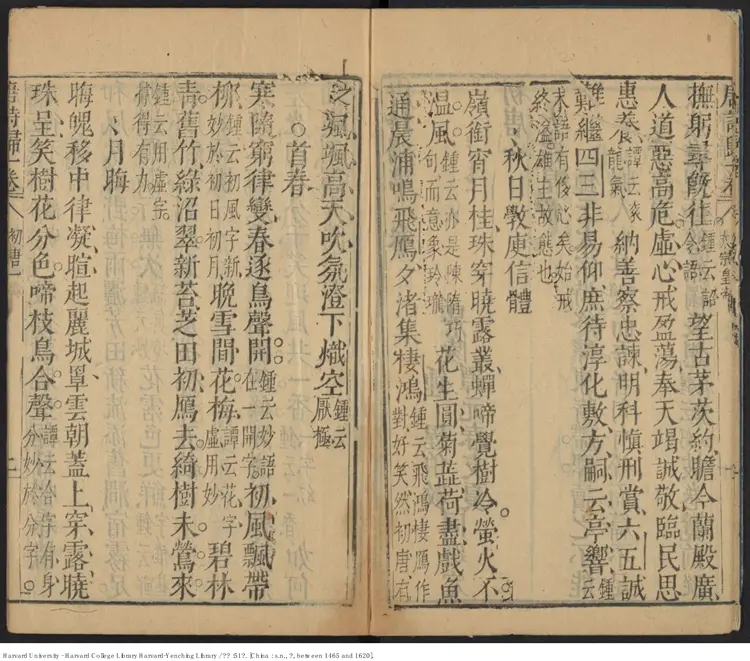 撫躬尋既往鍾云詔令語望古茅茨約瞻今蘭殿廣
人道惡高危虛心戒盈蕩奉天竭誠敬臨民思
惠養譚云家龍氣納善察忠諫明科慎刑賞六五誠
難繼四三非易仰庶待淳化敷方嗣云亭響鍾云
末語有俊心矣始戒終溢雄主故態也
秋日斆庾信體
嶺銜宵月桂珠穿曉露叢蟬啼覺樹冷螢火不
温風鍾云亦是陳隋巧句而意象玲瓏花生圓菊蕋荷盡戲魚
通晨浦鳴飛鴈夕渚集棲鴻鍾云飛鴻棲鴈作對好笑然初唐有
之颯颯高天吹氛澄下熾空鍾云厭極
首春
寒隨窮律變春逐鳥聲開鍾云妙語在一開字初風飄帶
柳鍾云初風字新妙於初日初月晚雪間花梅譚云花字虛用妙碧林
青舊竹綠沼翠新苔芝田初鴈去綺樹未鶯來
鍾云用虛字得有力
月晦
晦魄移中律凝暄起麗城罩雲朝蓋上穿露曉
珠呈笑樹花分色啼枝鳥合聲譚云合字有身分妙於分字
唐詩歸一卷 初唐一 二
Harvard University - Harvard College Library Harvard-Yenching Library / ?? :51?. [China : s.n., ?, between 1465 and 1620].